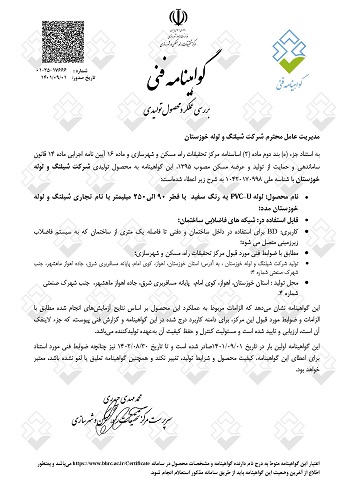 شماره: ۰۱-۲۵-۱۷۶۶۶
تاریخ صدور: ۱۴۰۱/۰۹/۰۱
گواهینامه فنی
گواهینامه فنی
بررسی عملکرد محصول تولیدی
مدیریت عامل محترم شرکت شیلنگ و لوله خوزستان
به استناد جزء (ه) بند دوم ماده (۲) اساسنامه مرکز تحقیقات راه، مسکن و شهرسازی و ماده ۱۶ آیین نامه اجرایی ماده ۱۴ قانون
ساماندهی و حمایت از تولید و عرضه مسکن مصوب ۱۳۹۵، این گواهینامه به محصول تولیدی شرکت شیلنگ و لوله
خوزستان با شناسه ملی ۱۰۴۲۰۱۷۰۹۹۸ به شرح زیر اعطاء می‌شود:
• نام محصول: لوله PVC-U به رنگ سفید با قطر ۹۰ الی ۲۵۰ میلیمتر با نام تجاری شیلنگ و لوله
خوزستان مدد؛
• قابل استفاده در: شبکه های فاضلابی ساختمان؛
• کاربری: BD برای استفاده در داخل ساختمان و دفنی تا فاصله یک متری از ساختمان که به سیستم فاضلاب
زیرزمینی متصل می شود؛
• مطابق با ضوابط فنی مورد قبول مرکز تحقیقات راه، مسکن و شهرسازی؛
• تولید شرکت شیلنگ و لوله خوزستان ، به آدرس: استان خوزستان، اهواز، کوی امام، پایانه مسافربری شرق، جاده اهواز ماهشهر، جنب
شهرک صنعتی شماره ۴.
• محل تولید : استان خوزستان، اهواز، کوی امام، پایانه مسافربری شرق، جاده اهواز ماهشهر، جنب شهرک صنعتی
شماره ۴.
این گواهینامه نشان می‌دهد که الزامات مربوط به عملکرد این محصول بر اساس نتایج آزمایش‌های انجام شده مطابق با
الزامات و ضوابط مورد قبول این مرکز، برای دامنه کاربرد درج شده در این گواهینامه و گزارش فنی پیوست، که جزء لاینفک
آن است، ارزیابی و تایید شده است و مسئولیت کنترل و حفظ کیفیت آن به‌عهده تولیدکننده می‌باشد.
این گواهینامه اولین بار در تاریخ ۱۴۰۱/۰۹/۰۱ صادر شده است و تا تاریخ ۱۴۰۲/۰۸/۳۰ نیز چنانچه ضوابط فنی مورد استناد
برای اعطای این گواهینامه، کیفیت محصول و شرایط تولید، تغییر نکند و همچنین گواهینامه تعلیق یا لغو نشده باشد، معتبر
خواهد بود.
محمد مهدی حیدری
سرپرست مرکز تحقیقات راه، مسکن و شهرسازی
اعتبار این گواهینامه منوط به درج نام دارنده گواهینامه و مشخصات محصول در سامانه https://www.bhrc.ac.ir/Certificate می‌باشد و به‌منظور
اطلاع از آخرین وضعیت این گواهینامه باید از طریق سامانه مذکور استعلام انجام شود.